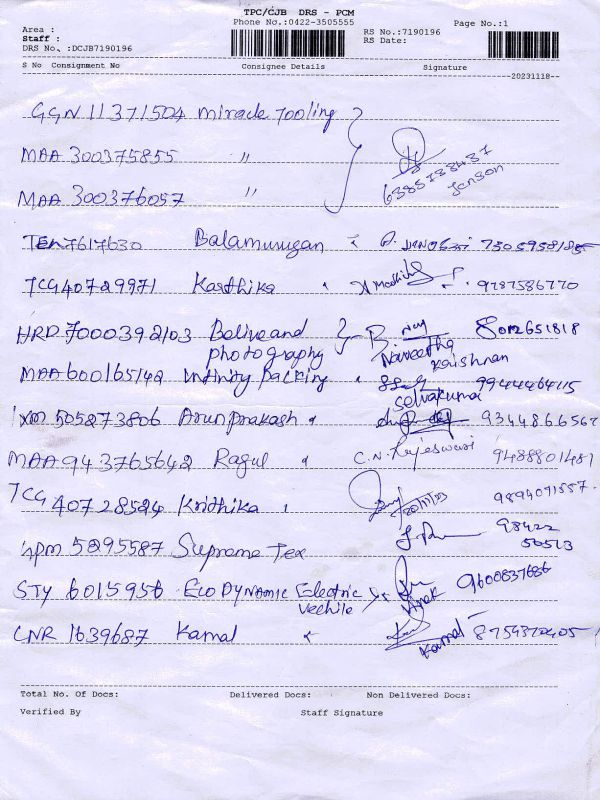 TPC/CJB DRS - PCM
Phone No.:0422-3505555
Page No.:1
Area :
Staff :
DRS No. :DCJB7190196
RS No.:7190196
RS Date:
S No Consignment No Consignee Details Signature
20231118
GGN 11371504 Miracle Tooling
MAA 300375855 "
MAA 300376057 "
6385738437
Jenson
7617630 Balamurugan
TCG 40729971 Karthika 9787586770
HRD 7000392103 Believe and photography 8012651818
Naveetha Krishnan
MAA 600165142 Infinity packing 9944464115
Selvakumar
505273806 Arun prakash 9344866562
MAA 943765642 Ragul C.N. Rajeswari 9488801481
TCG 40728524 Krithika 9894071557
5295587 Supreme Tex 98422
50513
STY 6015956 Eco Dynamic Electric Vechile 9600837686
CNR 1639687 Kamal Kamal
Total No. Of Docs: Delivered Docs: Non Delivered Docs:
Verified By Staff Signature